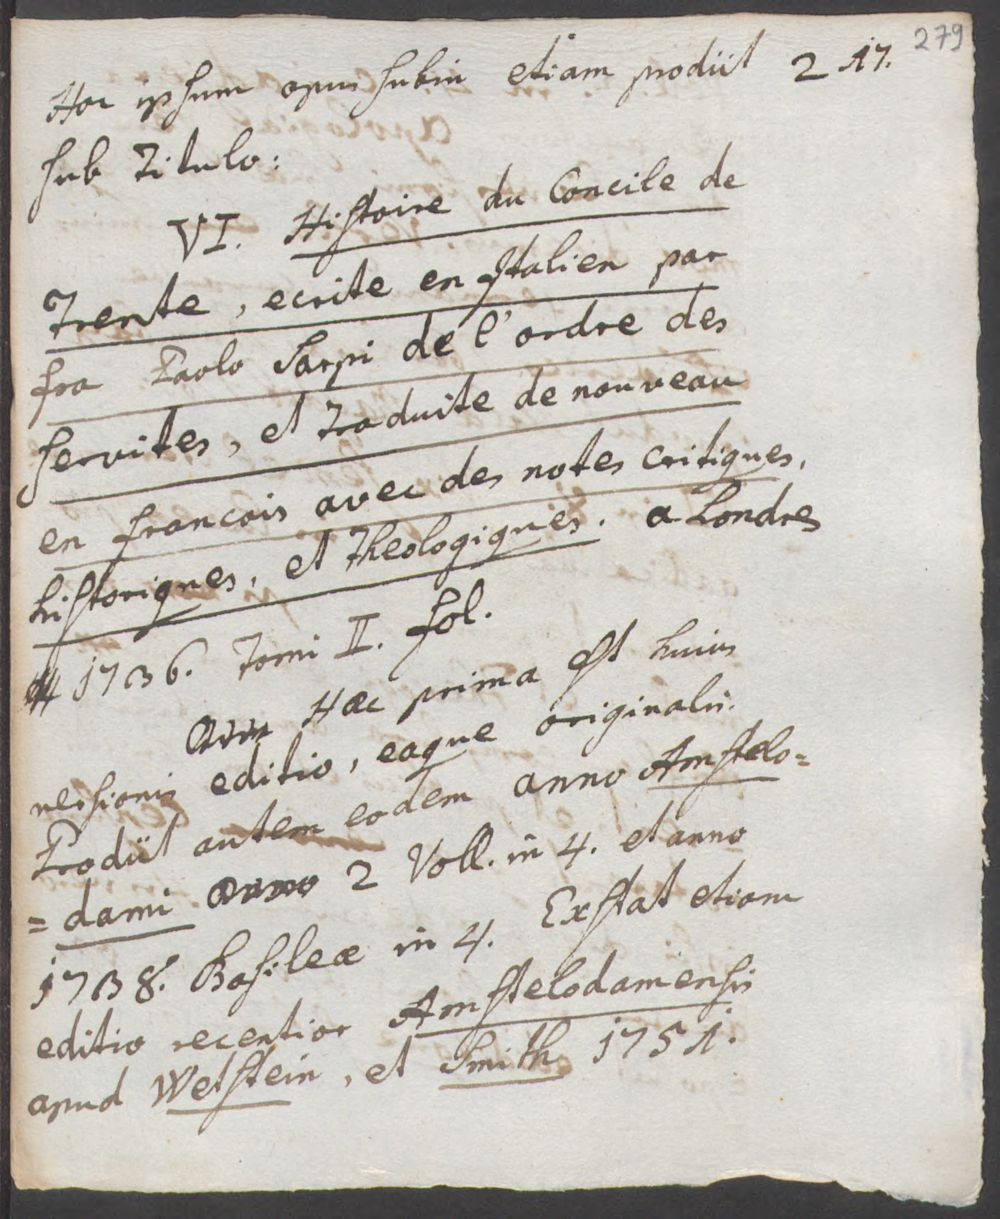 279
Hoc ipsum opus subin etiam prodiit 217.
sub titulo:
VI. Histoire du Concile de
Trente, ecrite en Italien par
fra Paolo Sarpi de l'ordre des
servites, et traduite de nouveau
en francois avec des notes critiques,
historiques, et theologiques. a Londres
1736. Tomi II. fol.
Hæc prima est huius
versionis editio, eaque originalis.
Prodiit autem eodem anno Amstelo=
=dami 2 Voll. in 4. et anno
1738. Basileæ in 4. Exstat etiam
editio recentior Amstelodamensis
apud Wetstein, et Smith 1751.